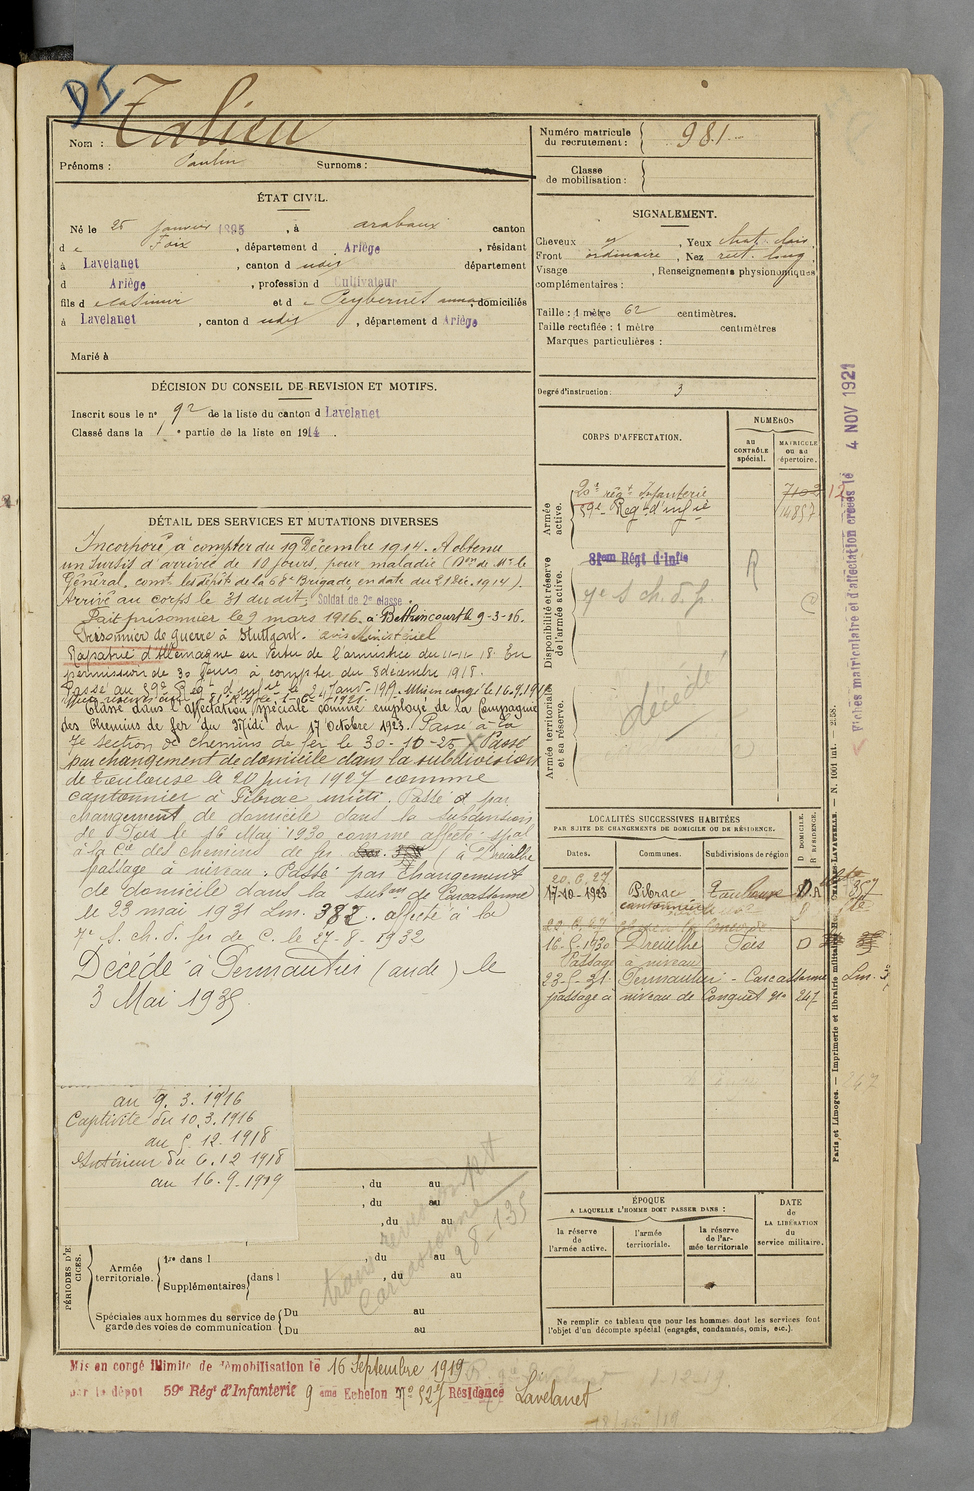 DI
Nom : Talieu
Prénoms : Paulin Surnoms :
Numéro matricule du recrutement : 981
Classe de mobilisation :
ÉTAT CIVIL.
Né le 25 janvier 1895, à arabaux canton
de Foix, département d Ariège, résidant
à Lavelanet, canton d udit département
d Ariège, profession d Cultivateur
fils de Casimir et de Peybernès anna, domiciliés
à Lavelanet, canton d udit, département d Ariège
Marié à
SIGNALEMENT.
Cheveux , Yeux chat. clair
Front ordinaire, Nez rect. long
Visage , Renseignements physionomiques
complémentaires :
Taille : 1 mètre 62 centimètres.
Taille rectifiée : 1 mètre centimètres
Marques particulières :
Degré d'instruction : 3
DÉCISION DU CONSEIL DE REVISION ET MOTIFS.
Inscrit sous le n° 92 de la liste du canton d Lavelanet
Classé dans la 1e partie de la liste en 1914.
DÉTAIL DES SERVICES ET MUTATIONS DIVERSES
Incorporé à compter du 19 Décembre 1914. A obtenu
un sursis d'arrivée de 10 jours, pour maladie (Don de Mr le
Général, comt les dépôts de la 68e Brigade, en date du 21 Déc. 1914).
Arrivé au corps le 31 du dit. Soldat de 2e classe.
Fait prisonnier le 9 mars 1916 à Bethincourt le 9-3-16.
Prisonnier de guerre à Stuttgart. avis Ministériel
Rapatrié d'Allemagne en vertu de l'armistice du 11-11-18. En
permission de 30 jours à compter du 8 décembre 1918.
Passé au 59e Régt d'infie le 24 janv. 1919. Mis en congé le 16.9.1919
Classé dans l'affectation spéciale comme employé de la Compagnie
des Chemins de fer du Midi du 17 Octobre 1923. Passé à la
7e section de chemins de fer le 30-10-25 X Passé
par changement de domicile dans la subdivision
de Toulouse le 20 juin 1927 comme
cantonnier à Pibrac midi. Passé par
changement de domicile dans la subdivision
de Foix le 16 Mai 1930 comme affecté spal
à la Cie des chemins de fer (à Dreuilhe
passage à niveau. Passé par changement
de domicile dans la subon de Carcassonne
le 23 mai 1931 Lm. 382. affecté à la
7e S. ch. d. fer de C. le 27-8-1932
Décédé à Pennautier (aude) le
3 Mai 1935
au 9. 3. 1916
Captivité du 10.3.1916
au 5. 12. 1918
Intérieur du 6.12 1918
au 16.9.1919
CORPS D'AFFECTATION.
NUMÉROS
AU CONTRÔLE spécial.
MATRICULE ou au répertoire.
Armée active.
20e régt Infanterie
59e Regt d'infie
7102 12
14857
Disponibilité et réserve de l'armée active.
81em Régt d'Infie
7e S ch. d. f.
R
Armée territoriale et sa réserve.
décédé
LOCALITÉS SUCCESSIVES HABITÉES
PAR SUITE DE CHANGEMENTS DE DOMICILE OU DE RÉSIDENCE.
Dates. Communes. Subdivisions de région
D DOMICILE. R RÉSIDENCE.
20.6.27
17-10-1923 Pibrac Toulouse D.R 357
cantonnier
16-5-1930 Dreuilhe Foix D
Passage à niveau
23-5-31 Pennautier - Carcassonne Lm.
passage à niveau de Conquet n° 247
247
ÉPOQUE
A LAQUELLE L'HOMME DOIT PASSER DANS :
la réserve de l'armée active.
l'armée territoriale.
la réserve de l'armée territoriale
DATE de LA LIBÉRATION du service militaire.
Ne remplir ce tableau que pour les hommes dont les services font
l'objet d'un décompte spécial (engagés, condamnés, omis, etc.).
, du au
, du au
, du au
PÉRIODES D'E
CICES.
Armée territoriale.
1re dans l , du au
Supplémentaires dans l , du au
Spéciales aux hommes du service de garde des voies de communication
Du au
Du au
Carcassonne
28-1-35
Mis en congé illimité de démobilisation le 16 Septembre 1919
par le dépôt 59e Régt d'Infanterie 9 eme Echelon N° 527 Résidence Lavelanet
Fiches matriculaire et d'affectation créées le 4 NOV 1921
Paris et Limoges. — Imprimerie et librairie militaires Henri CHARLES-LAVAUZELLE. — N. 1001 int. — 2-58.